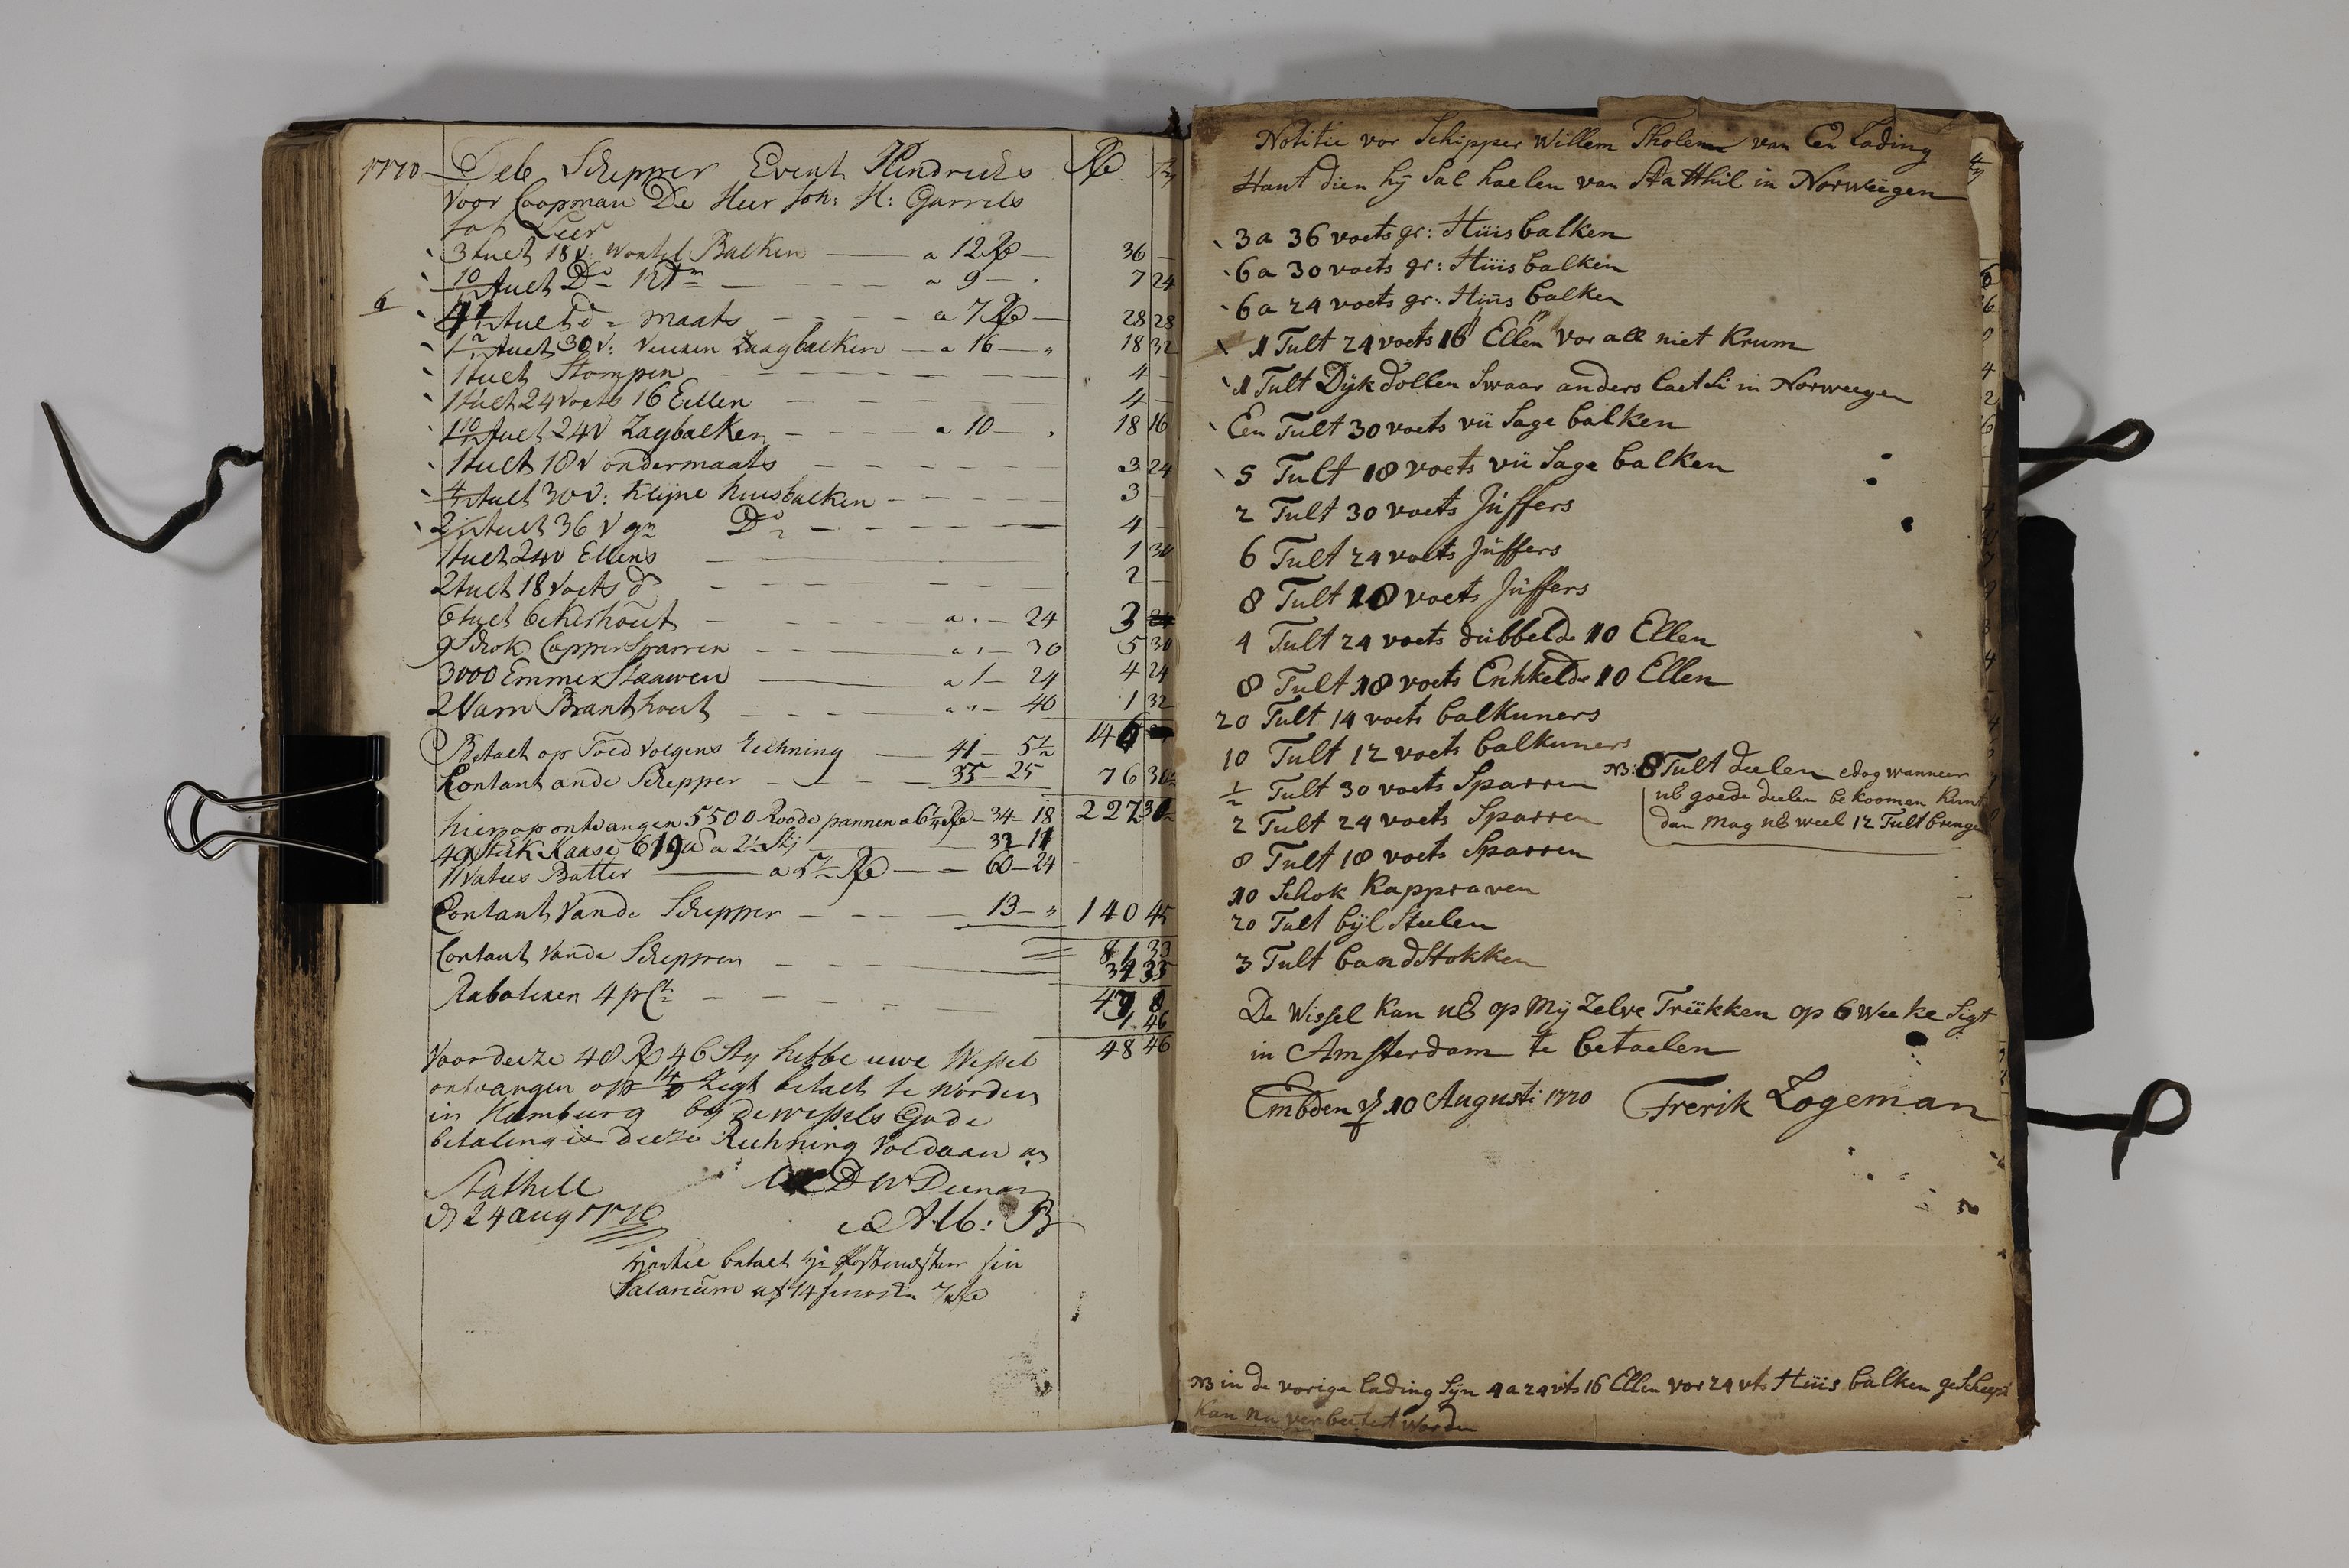 1770 Debt Schipper Evert Hindricks Rd Sty
Voor Coopman De Heer Joh: H: Garrels
tot Leer
3 tuct 18 v: Wrakel Balken a 12 Rd 36 —
10/12 tuct Do a 9 — 7 24
4 1/12 tuct do maats a 7 Rd — 28 28
1 2/12 tuct 30 v: vueren Zaagbalken a 16 — 18 32
1 tuct Stompen 4 —
1 tuct 24 voets 16 Ellen 4 —
1 10/12 tuct 24 v Zagbalken a 10 — 18 16
1 tuct 18 v ondermaats 3 24
4/12 tuct 30 v: Klijne huusbalken 3
2/12 tuct 36 v gr Do 4 —
1 tuct 24 v Ellens 1 30
2 tuct 18 voets do 2 —
6 tuct bekerhout a — 24 3
9 Schok Capper Sparren a — 30 5 30
3000 Emmer Stauwen a 1 — 24 4 24
2 Vam Branthout a — 40 1 32
146
Betaelt op Toed volgens Rechning 41 — 5 1/2
Contant ande Schepper 35 — 25 76 30 1/2
227 30
hierop ontvangen 5500 Roode pannen a 6 1/4 Rd 34 — 18
49 Stuk Kaase 619 a 2 1/2 Sty 32 11
11 vaties Botter a 5 1/2 Rd 60 — 24
Contant Vande Schepper 13 — 140 45
81 33
Contant Vande Schepper 34 35
47 8
Rabateren 4 pCt 1 46
48 46
Voor deeze 48 Rd 46 Sty hebbe uwe Wessel
ontvangen op Zegt betalt te worden
in Hamburg by de wessels Gode
betaling is deeze Rechning Voldaan
Stathell
d 24 aug 1770
Salarium
Notitie vor Schipper Willem Tholen van Een Lading
Hout dien hÿ Sal haelen van Statthil in Norweegen
3 a 36 voets gr: Hüisbalken
6 a 30 voets gr: Hüisbalken
6 a 24 voets gr: Hüis balken
1 Tult 24 voets 16 Ellen vor all niet Krum
1 Tult Dÿkdollen Swaar anders laet Si in Norweegen
Een Tult 30 voets vü Sage balken
5 Tult 18 voets vü Sage balken
2 Tult 30 voets Jüffers
6 Tult 24 voets Jüffers
8 Tult 18 voets Jüffers
4 Tult 24 voets dübbelde 10 Ellen
8 Tult 18 voets Enhkelde 10 Ellen
20 Tult 14 voets balkuners
10 Tult 12 voets balkuners
1/2 Tult 30 voets Sparren
2 Tult 24 voets Sparren
8 Tult 18 voets Sparren
NB: 8 Tult deelen edog wanneer
uE goede deelen bekoomen kunt
dan Mag uE weel 12 Tult brengen
10 Schok Kappraven
20 Tult bÿl Steelen
3 Tult bandStokken
De Wissel Kan uE op Mÿ Zelve Trükken op 6 Weeke Sigt
in Amsterdam te betaelen
Embden 10 Augusti 1770 Frerik Logeman
NB in de vorige Lading Sÿn 4 a 24 vts 16 Ellen vor 24 vts Hüis balken gescheept
Kan nu verbeetert worden